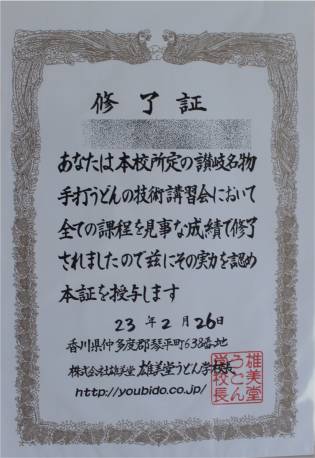 修了証
あなたは本校所定の讃岐名物
手打うどんの技術講習会において
全ての課程を見事な成績で修了
されましたので茲にその実力を認め
本証を授与します
23年2月26日
香川県仲多度郡琴平町638番地
株式会社雄美堂 雄美堂うどん学校長
http://youbido.co.jp/
雄美堂
うどん
学校長